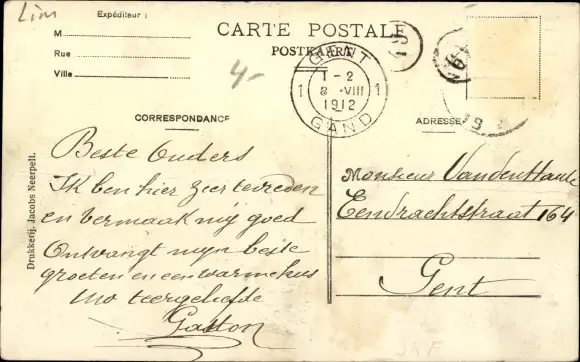 Lim
Expéditeur :
M
Rue
Ville
CARTE POSTALE
POSTKAART
4-
GENT
1-2
1 8 VIII 1
1912
GAND
CORRESPONDANCE
ADRESSE
Beste Ouders
Ik ben hier zeer tevreden
en vermaak mij goed
Ontvangt mijn beste
groeten en een warme kus
Uw teergeliefde
Gaston
Monsieur
Eendrachtstraat 164
Gent
Drukkerij. Jacobs Neerpelt.